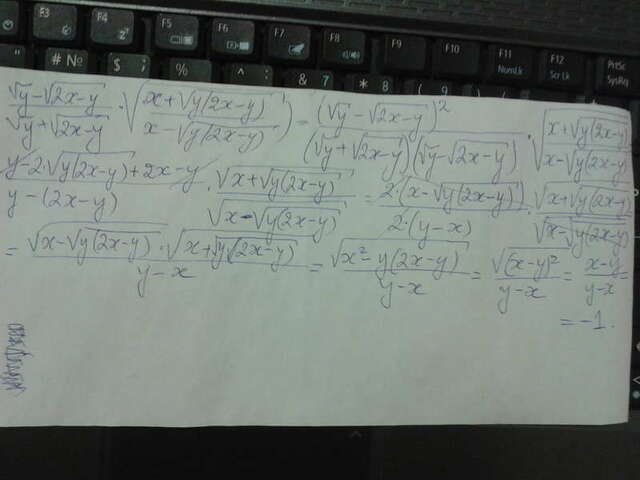 F3 F4 F5 F6 F7 F8 F9 F10 F11 NumLk F12 Scr Lk PrtSc SysRq
" # № $ ; % ^ : & 7 * 8 ( 9
(√y − √(2x−y))/(√y + √(2x−y)) · √((x + √(y(2x−y)))/(x − √(y(2x−y)))) = (√y − √(2x−y))²/((√y + √(2x−y))(√y − √(2x−y))) · √((x + √(y(2x−y)))/(x − √(y(2x−y))))
(y − 2·√(y(2x−y)) + 2x − y)/(y − (2x−y)) · √(x + √(y(2x−y)))/√(x − √(y(2x−y))) = 2·(x − √(y(2x−y)))/(2·(y−x)) · √(x + √(y(2x−y)))/√(x − √(y(2x−y)))
= √(x − √(y(2x−y))) · √(x + √(y(2x−y)))/(y − x) = √(x² − y(2x−y))/(y−x) = √((x−y)²)/(y−x) = (x−y)/(y−x)
= −1.